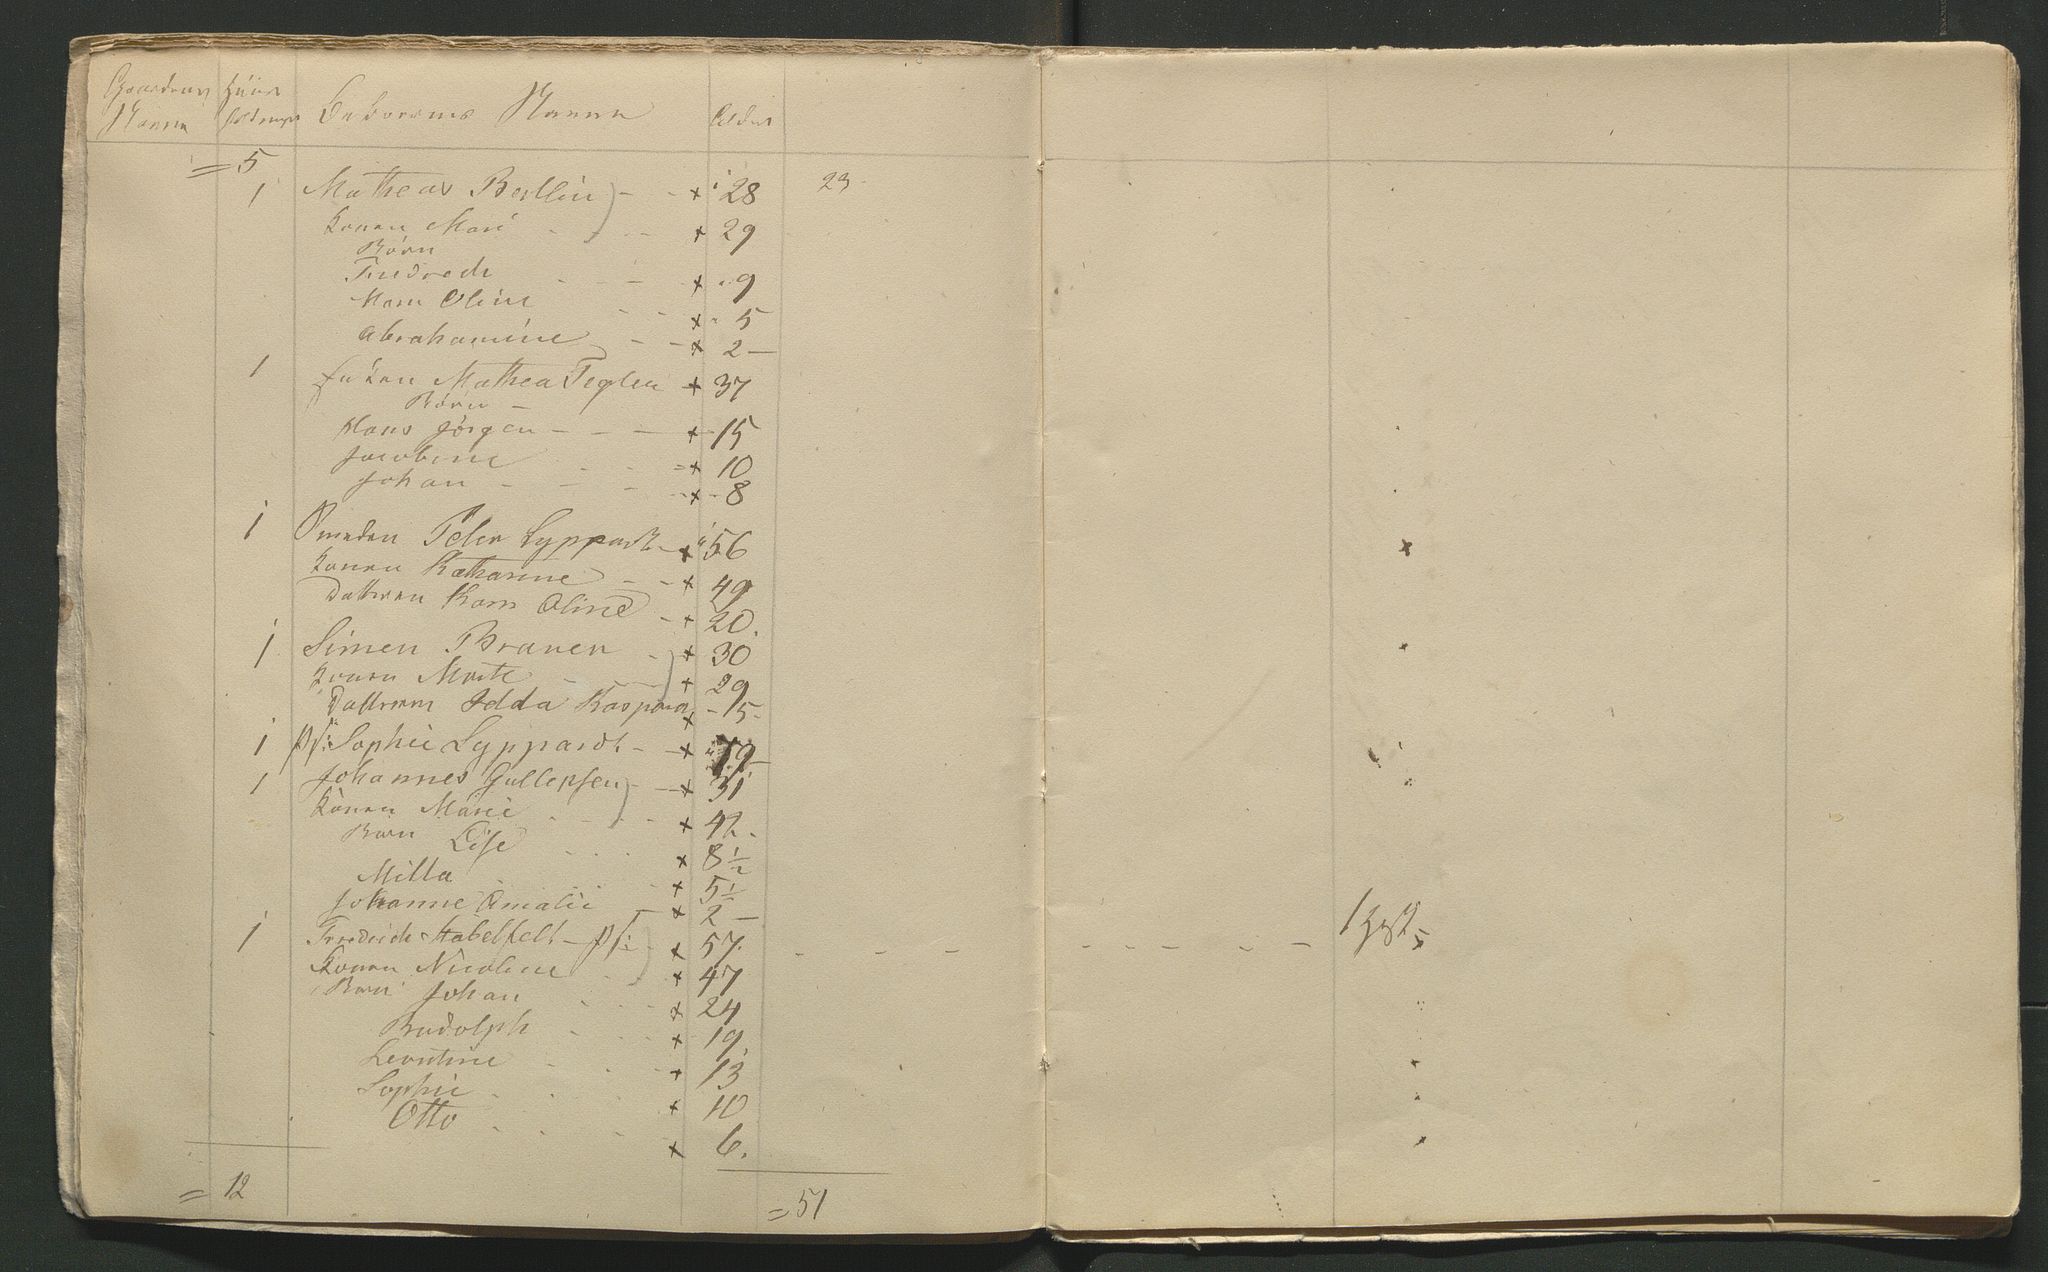 Gaardens Huus
Navn Beboernes Navne Alder
= 5
1 Matheas Berllin - - x 28 23
Konen Mari - - x 29
Børn
Friedrech - - - x 9
Maren Oline - - x 5
Abrahamine - - x 2 -
1 Enken Mathea Teglen x 37
Børn -
Hans Jörgen - - - x 15
Jacobine - - = x 10
Johan - - - - x 8
1 Smeden Peter Lyppardt - x 56
Konen Katharine - - x 49
Datteren Karn Oline - x 20.
1 Simen Braner - x 30
Konen Marte - - x 29
Datteren Idda Kaspara x 15
1 Sophie Lyppardt - - x 79 -
1 Johannes Gullepsen - - x 31
Konen Marie - - - x 42.
Børn Lise - - - x 8 1/2
Milla - - x 5 1/2
Johanne Amalie - x 2 -
1 Friedrich Habelfelt - x 57. - - - - - - - - 1 x
Konen Nicoline - x 47
Børn Johan - - - x 24
Rudolph - - - x 19.
Leontine - - - x 13
Sophie - - - x 10
Otto - - - x 6.
= 12 = 51